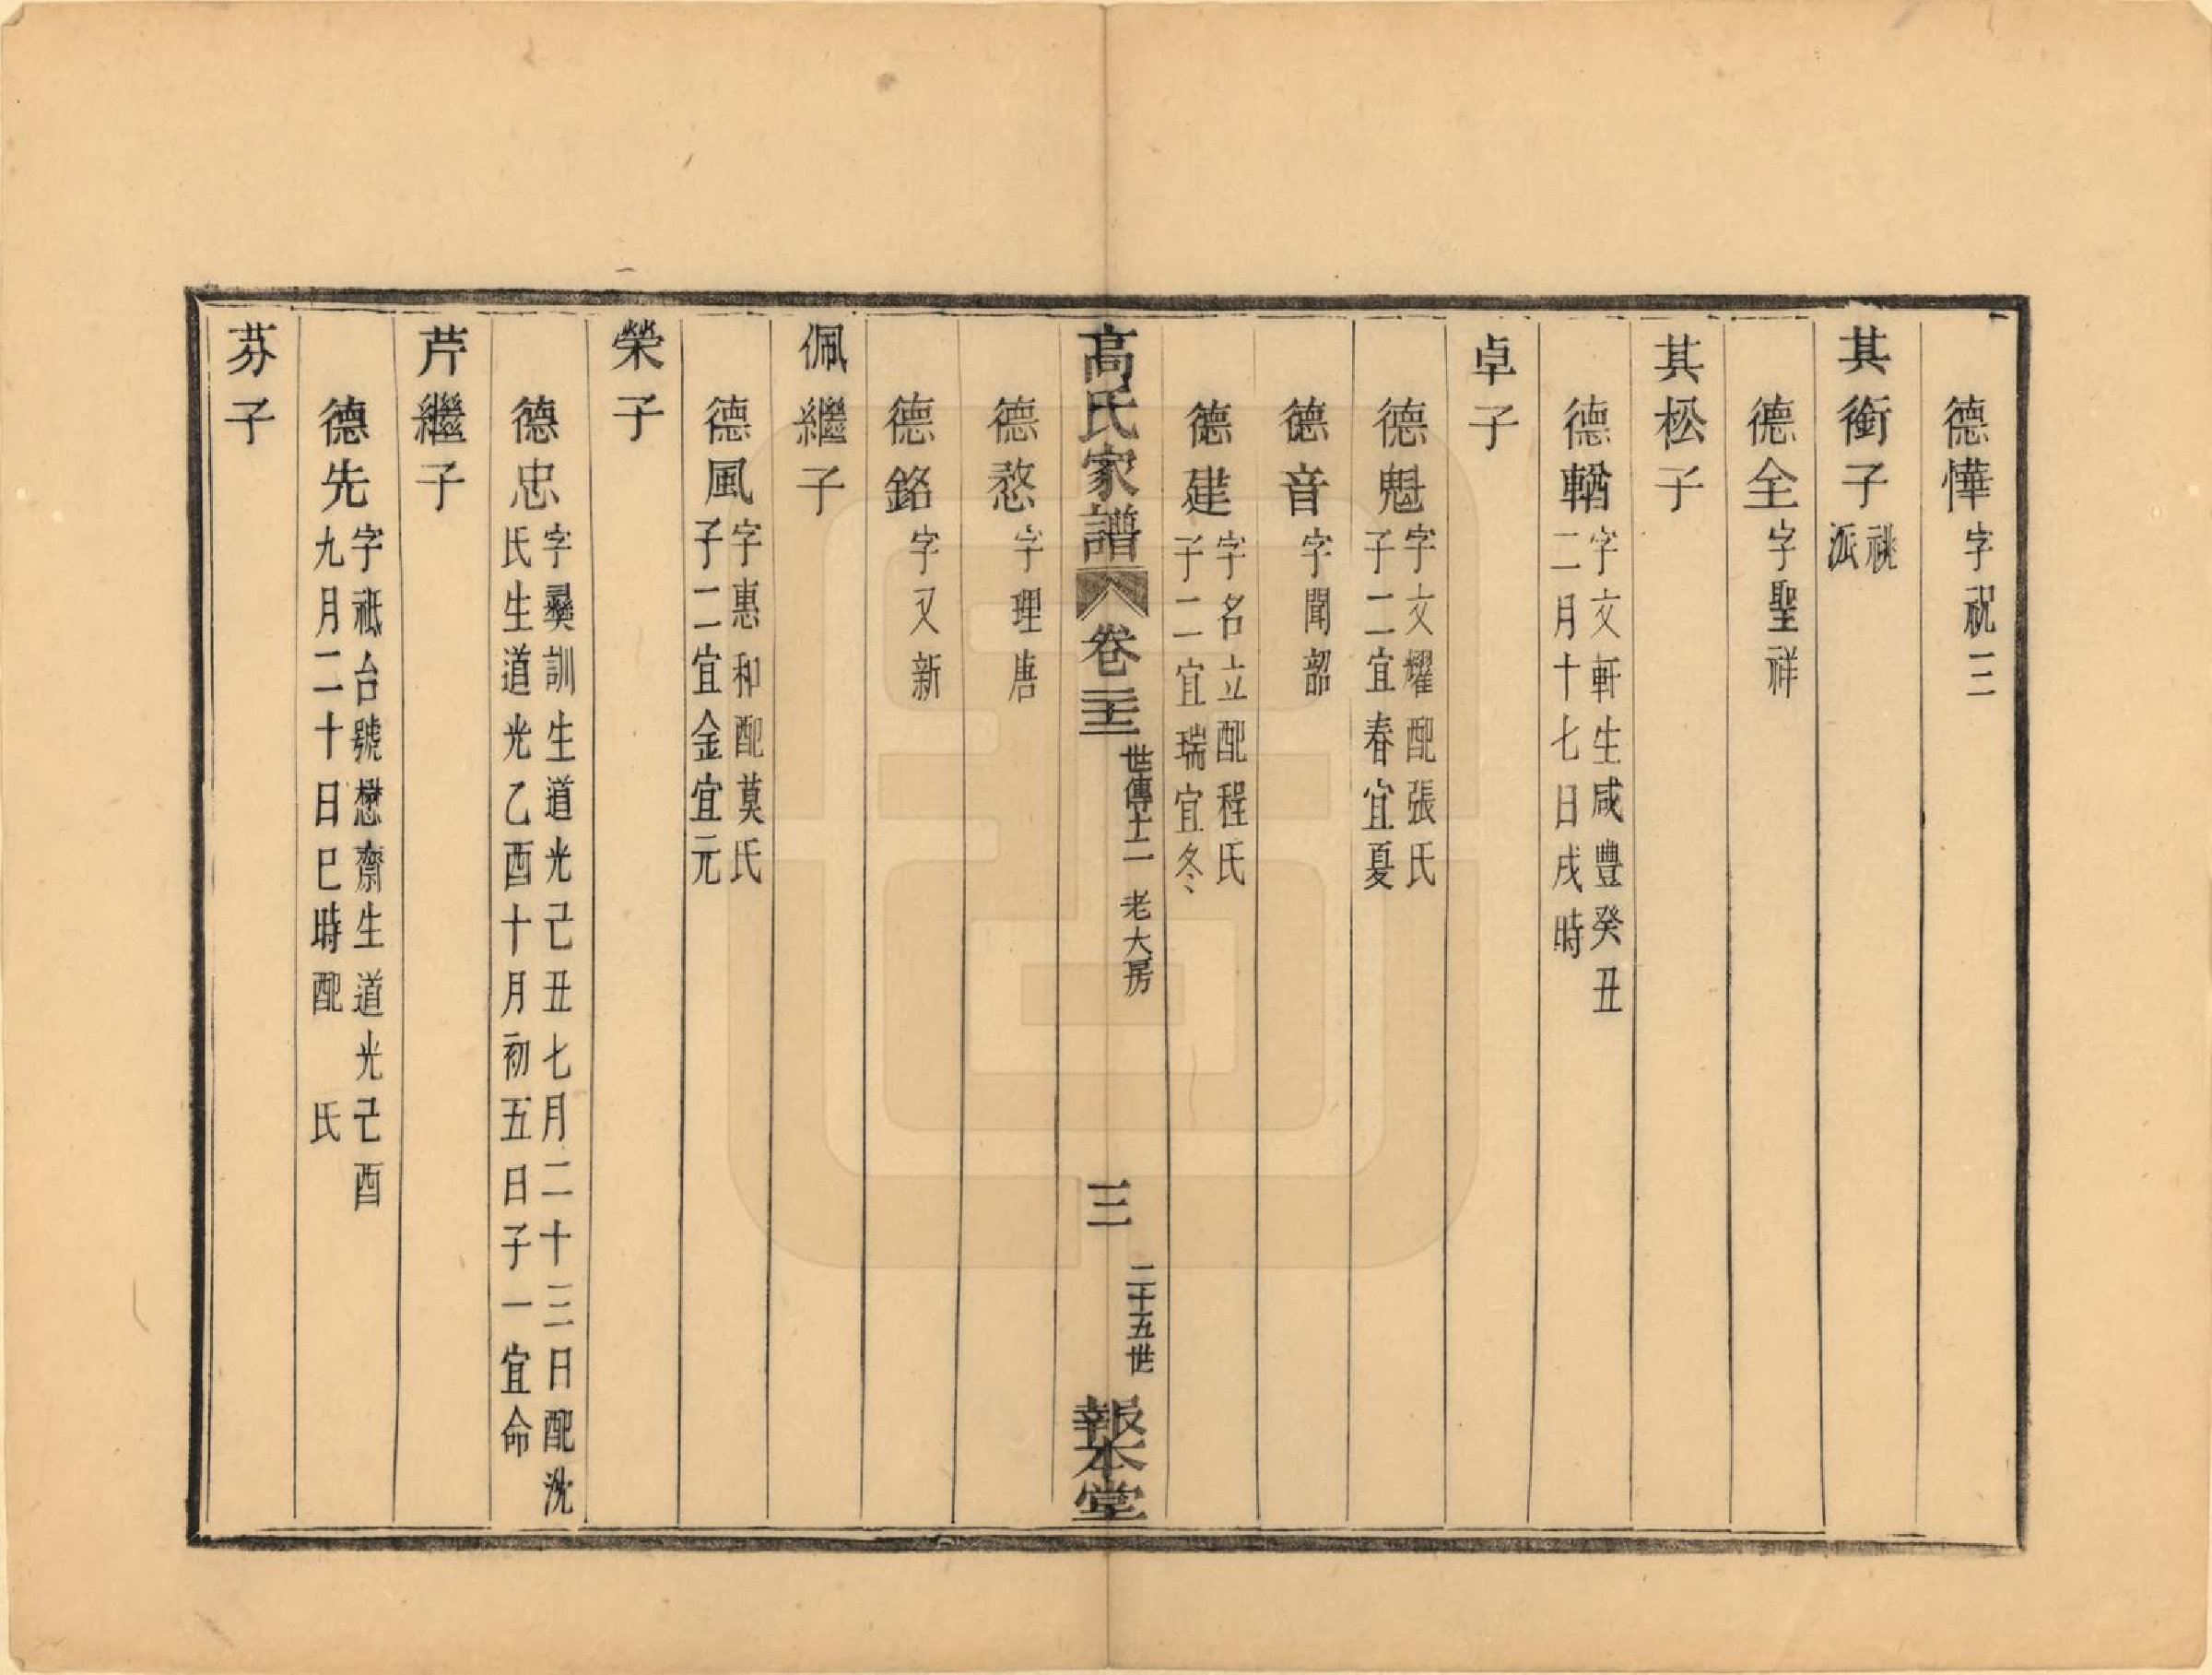 德㦊字祝三
其銜子祧派
德全字聖祥
其松子
德輶字文軒生咸豐癸丑
二月十七日戌時
卓子
德魁字文耀配張氏
子二宜春宜夏
德音字聞韶
德建字名立配程氏
子二宜瑞宜冬
高氏家譜 卷二十三 世傳十二 老大房 三 二十五世 報本堂
德憨字理唐
德銘字又新
佩繼子
德風字惠和配莫氏
子二宜金宜元
榮子
德忠字彝訓生道光己丑七月二十三日配沈
氏生道光乙酉十月初五日子一宜命
芹繼子
德先字祗台號懋齋生道光己酉
九月二十日巳時配 氏
芬子